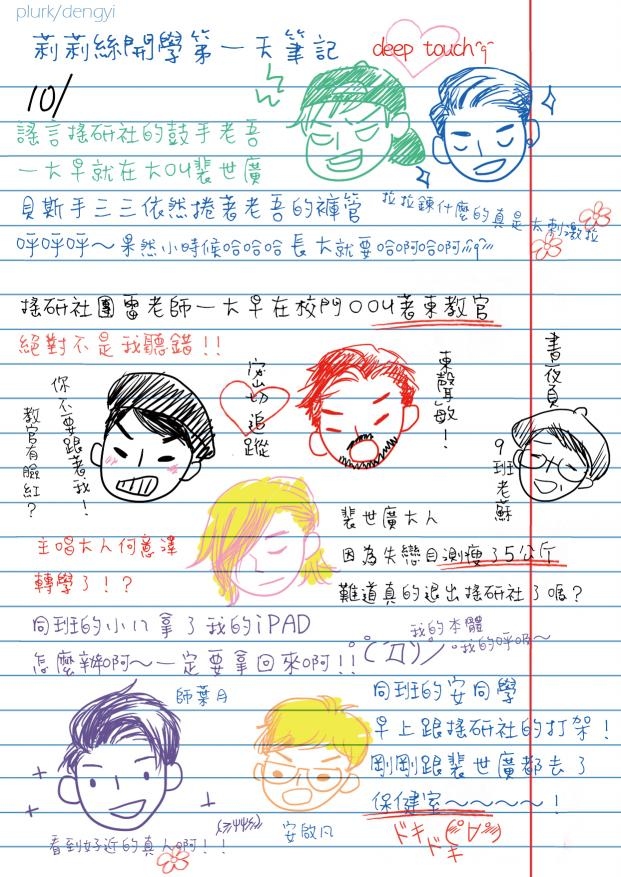 plurk/dengyi
莉莉絲開學第一天筆記
deep touch
10/
謠言搖研社的鼓手老吾
一大早就在大04裴世廣
貝斯手三三依然捲著老吾的褲管
拉拉鍊什麼的真是太刺激拉
呼呼呼~果然小時候哈哈哈長大就要哈啊哈啊
搖研社團雷老師一大早在校門004著東教官
絕對不是我聽錯!!
你不要跟著我!
教官有臉紅?
密切追蹤
東聲敏!
書僮頁
9班老蘇
主唱大人何意澤
轉學了!?
裴世廣大人
因為失戀目測瘦了5公斤
難道真的退出搖研社了嗎?
同班的小八拿了我的iPAD
怎麼辦啊~一定要拿回來啊!!
我的本體
我的呼吸~
師葉月
看到好近的真人啊!!
安啟凡
同班的安同學
早上跟搖研社的打架!
剛剛跟裴世廣都去了
保健室~~~~!
ドキドキ